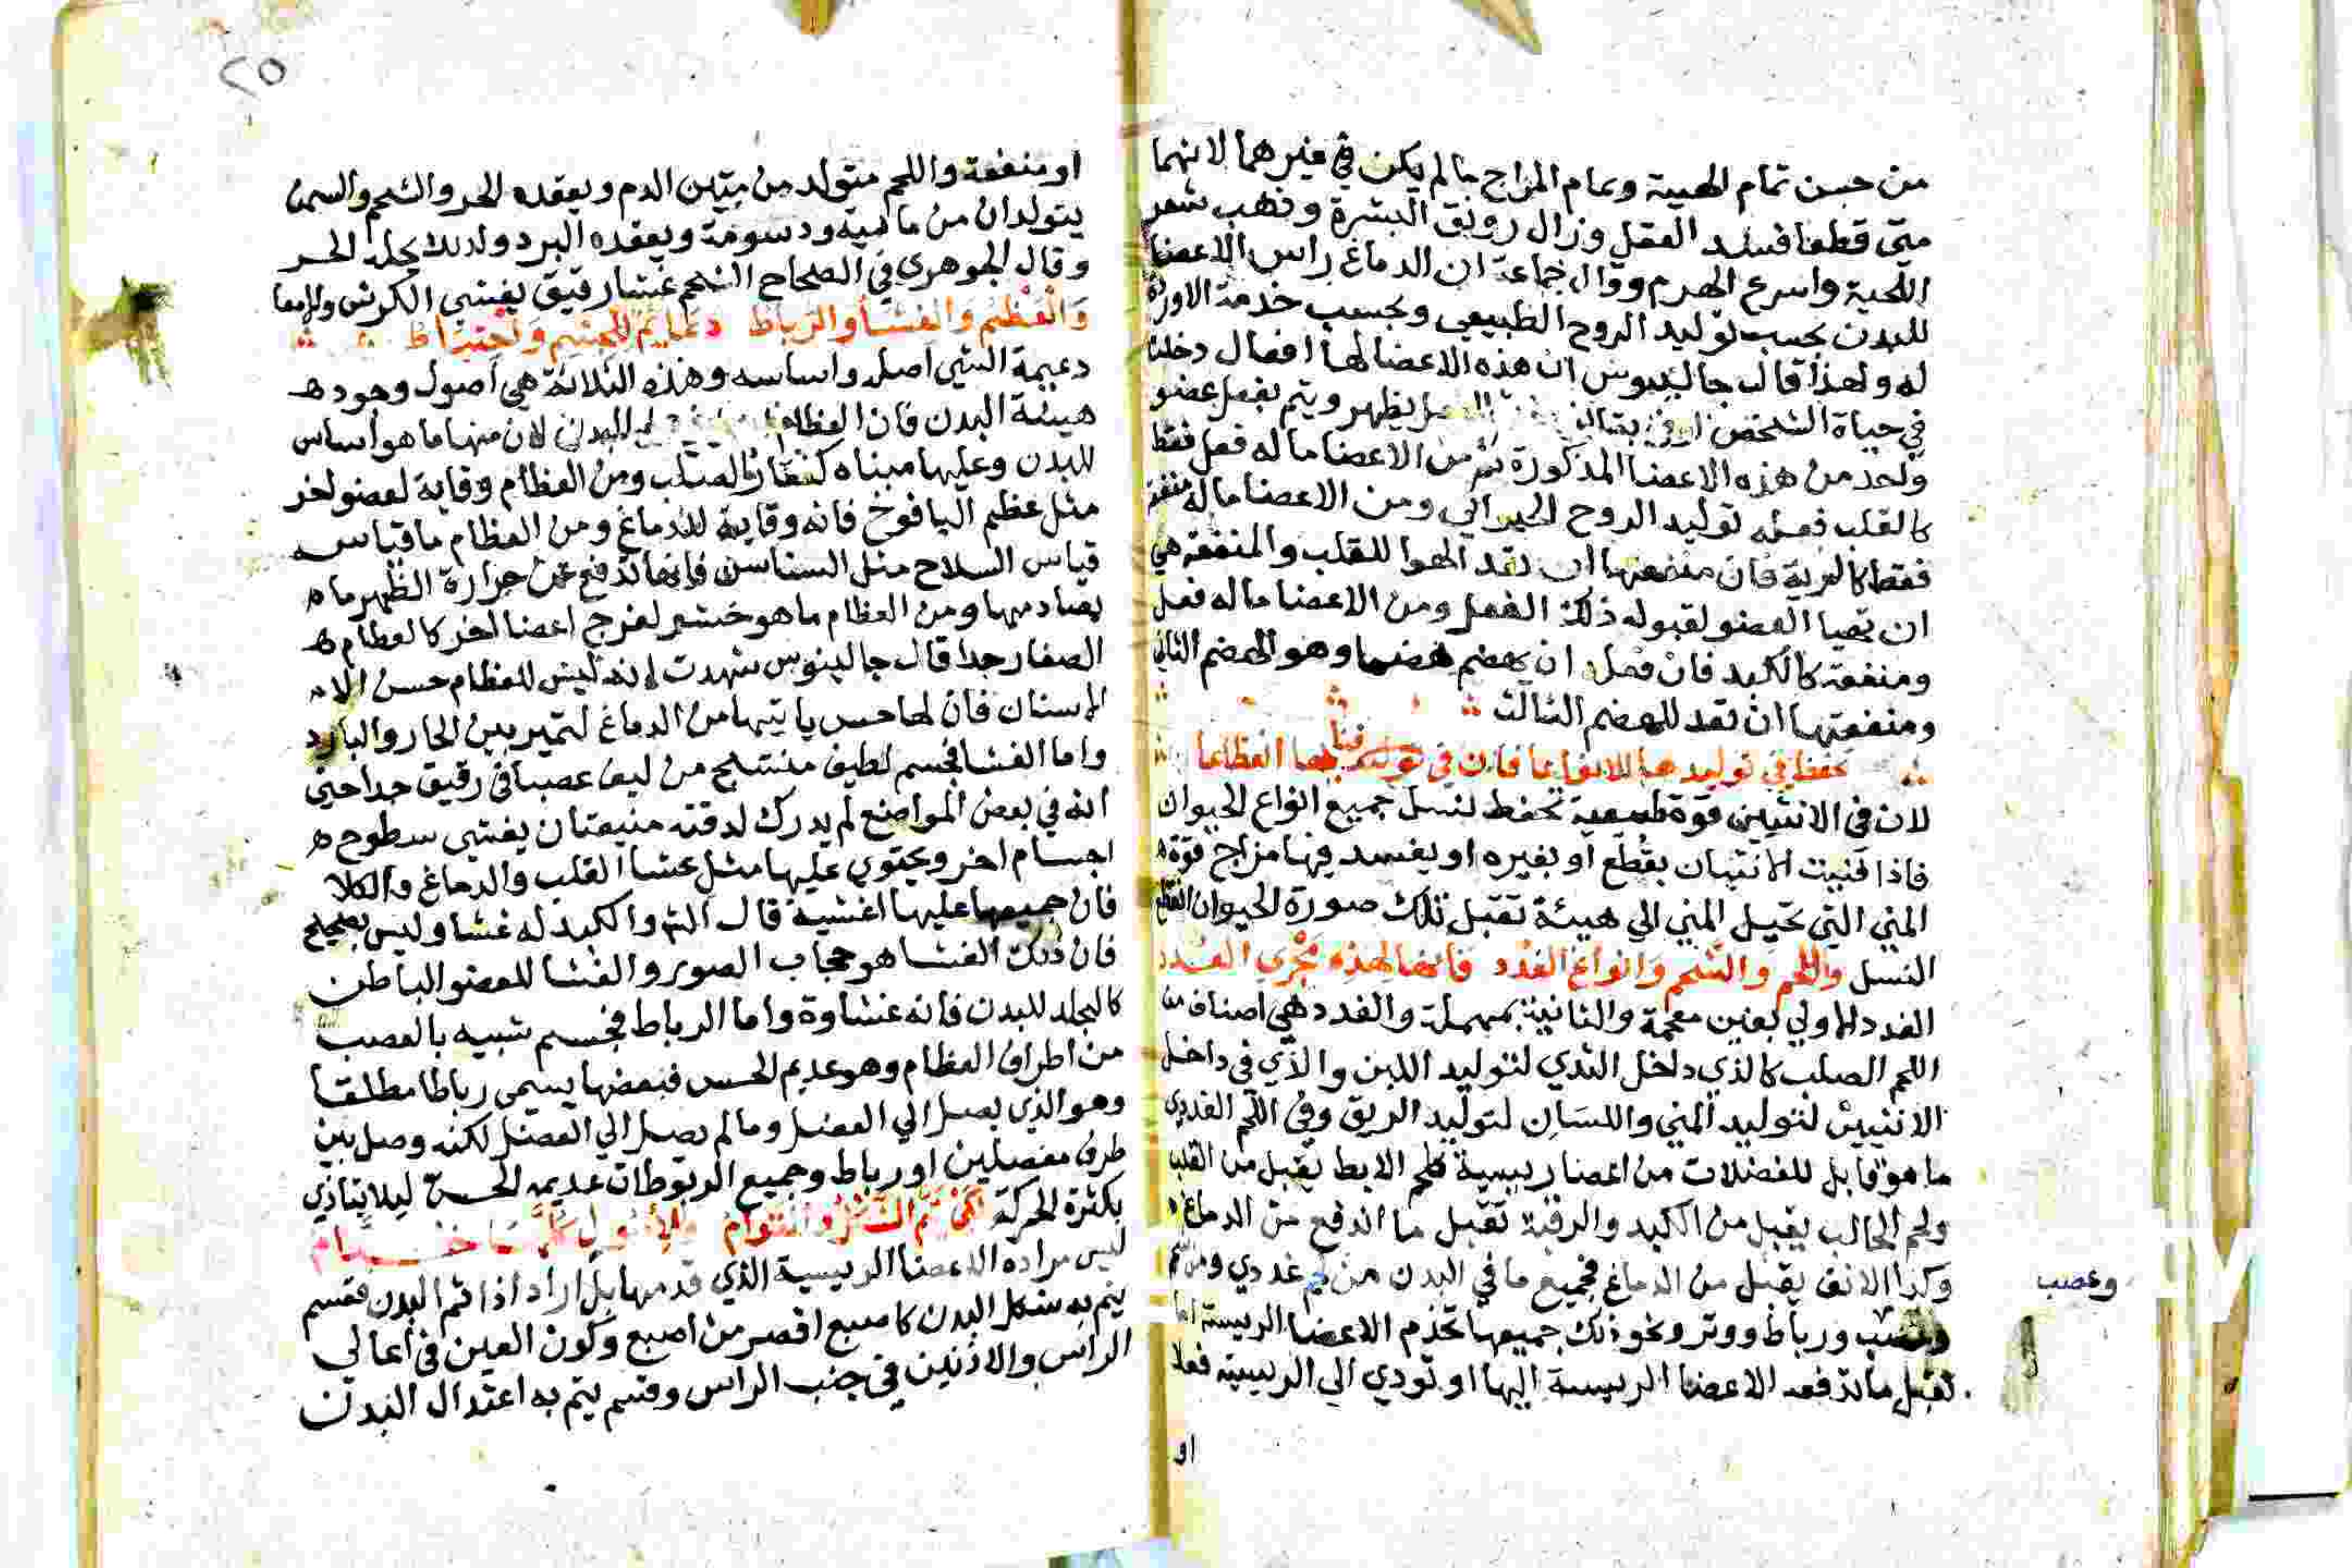 من حسن تمام الهيبة وتمام المزاج مالم يكن في غيرهما لانهما
متى قطعا فسد العقل وزال رونق البشرة وذهب شعر
اللحية واسرع الهرم وقال جماعة ان الدماغ راس الاعضا
للبدن بحسب توليد الروح الطبيعي وبحسب خدمة الاوردة
له ولهذا قال جالينوس ان هذه الاعضا لها افعال دخلت
في حياة الشخص يظهر ويتم بفعل عضو
واحد من هذه الاعضا المذكورة ثم من الاعضا ما له فعل فقط
كالقلب فعله توليد الروح الحيواني ومن الاعضا ماله منفعة
فقط كالرية فان منفعتها ان تعد الهوا للقلب والمنفعة هي
ان تهيا العضو لقبوله ذلك الفعل ومن الاعضا ماله فعل
ومنفعة كالكبد فان فعله ان يهضم هضما وهو الهضم الثاني
ومنفعتها ان تعد للهضم الثالث
تحفظ في توليدها للانواعا فان في انقطاعا
لان في الانثيين قوة طبيعية تحفظ لنسل جميع انواع الحيوان
فاذا فنيت الانثيان بقطع او بغيره او يفسد فيها مزاج قوة
المني التي تحيل المني الي هيئة تقبل تلك صورة الحيوان انقطع
النسل واللحم والشحم وانواع الغدد فانها لهذه تجري العدد
الغدد الاولي بغين معجمة والثانية بمهملة والغدد هي اصناف من
اللحم الصلب كالذي داخل الثدي لتوليد اللبن والذي في داخل
الانثيين لتوليد المني واللسان لتوليد الريق وفي اللحم الغددي
ما هو قابل للفضلات من اعضا رييسية كلحم الابط يقبل من القلب
ولحم الحالب يقبل من الكبد والرقبة تقبل ما اندفع من الدماغ
وكذا الانف يقبل من الدماغ فجميع ما في البدن من لحم غددي ومن
وعصب
وعصب ورباط ووتر ونحو ذلك جميعها تخدم الاعضا الرييسة اما
تقبل ما تدفعه الاعضا الرييسة اليها او تودي الي الرييسة فعلا
او
٢٥
او منفعة واللحم متولد من متين الدم ويعقده الحر والشحم والسمن
يتولدان من ماييه ودسومة ويعقده البرد ولذلك يحله الحر
وقال الجوهري في الصحاح الشحم غشا رقيق يغشي الكرش والامعا
والعظم والغشا والرباط دعايم للجسم واحتياط
دعيمة الشي اصله واساسه وهذه الثلاثة هي اصول وجود
هيئة البدن فان العظام البدن لان منها ما هو اساس
للبدن وعليها مبناه كفقار الصلب ومن العظام وقاية لعضو اخر
مثل عظم اليافوخ فانه وقاية للدماغ ومن العظام ما قياسه
قياس السلاح مثل السناسن فانها تدفع عن حرارة الظهر ما
يصادمها ومن العظام ما هو حشو لفرج اعضا اخر كالعظام
الصغار جدا قال جالينوس شهدت انه ليس للعظام حس الا
الاسنان فان لها حس ياتيها من الدماغ لتميز بين الحار والبارد
واما الغشا فجسم لطيف منتسج من ليف عصباني رقيق جدا حتى
انه في بعض المواضع لم يدرك لدقته منيعتان يغشي سطوح
اجسام اخر ويحتوي عليها مثل غشا القلب والدماغ والكلا
فان جميعها عليها اغشية قال الش والكبد له غشا وليس بصحيح
فان ذلك الغشا هو حجاب الصدر والغشا للعضو الباطن
كالجلد للبدن فانه غشاوة واما الرباط فجسم شبيه بالعصب
من اطراف العظام وهو عديم الحس فبعضها يسمى رباطا مطلقا
وهو الذي يصل الي العضل وما لم يصل الي العضل لكنه وصل بين
طرفي مفصلين او رباط وجميع الربوطات عديمه الحس ليلا يتاذي
بكثرة الحركة
ليس مراده الاعضا الرييسية الذي قدمها بل اراد اذا تم البدن فقسم
يتم به شكل البدن كاصبع اقصر من اصبع وكون العين في اعالي
الراس والاذنين في جنب الراس وقسم يتم به اعتدال البدن